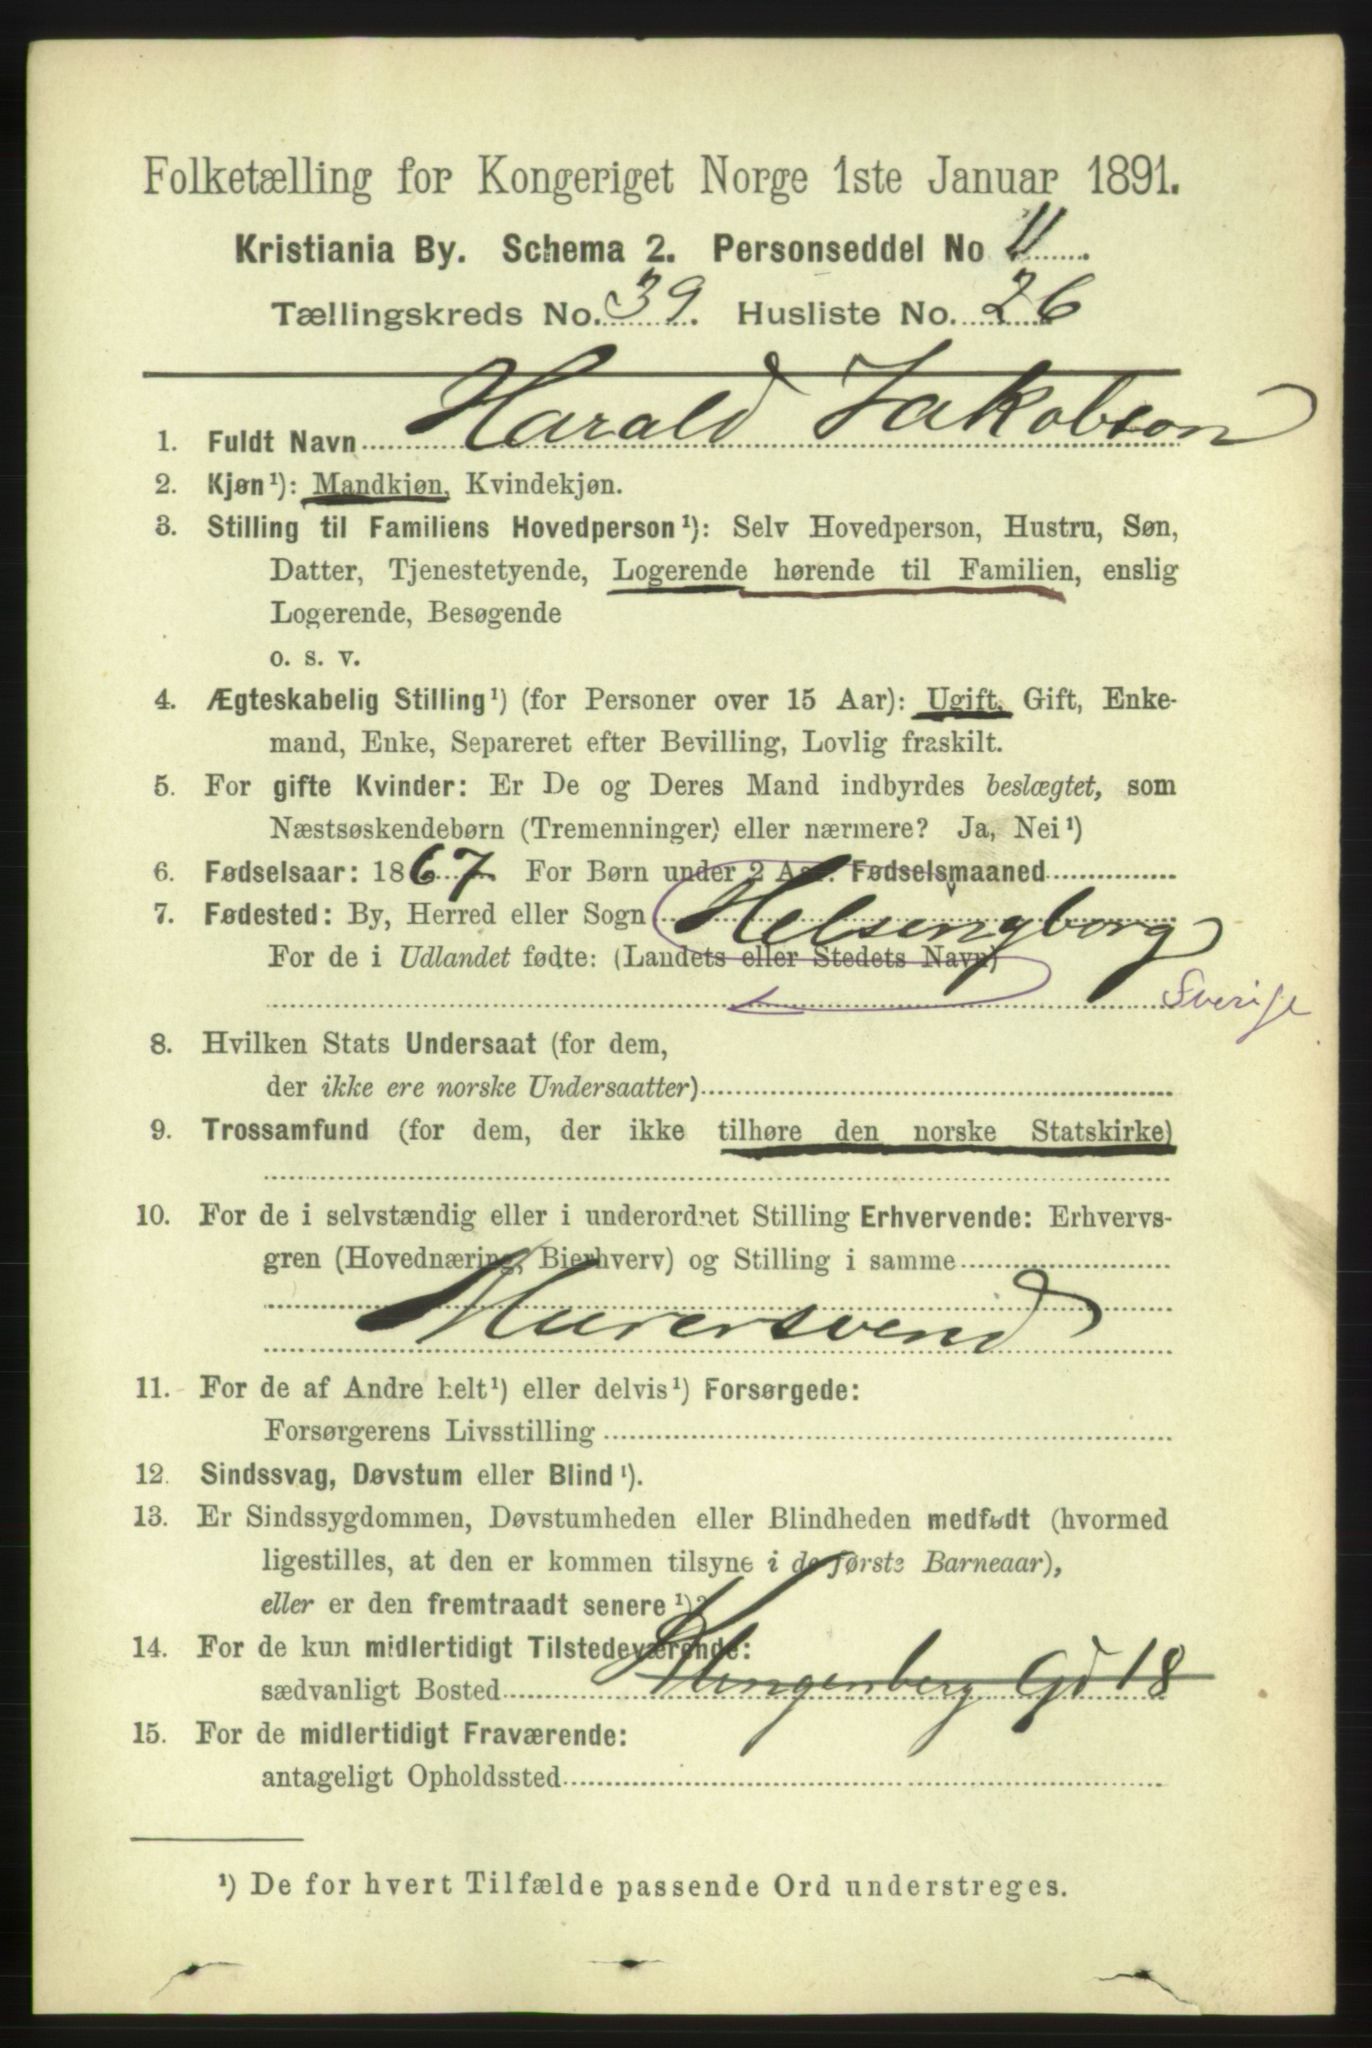 Folketælling for Kongeriget Norge 1ste Januar 1891.
Kristiania By. Schema 2. Personseddel No 11
Tællingskreds No. 39. Husliste No. 26
1. Fuldt Navn Harald Jakobson
2. Kjøn¹): Mandkjøn, Kvindekjøn.
3. Stilling til Familiens Hovedperson¹): Selv Hovedperson, Hustru, Søn,
Datter, Tjenestetyende, Logerende hørende til Familien, enslig
Logerende, Besøgende
o. s. v.
4. Ægteskabelig Stilling¹) (for Personer over 15 Aar): Ugift, Gift, Enke-
mand, Enke, Separeret efter Bevilling, Lovlig fraskilt.
5. For gifte Kvinder: Er De og Deres Mand indbyrdes beslægtet, som
Næstsøskendebørn (Tremenninger) eller nærmere? Ja, Nei¹)
6. Fødselsaar: 1867. For Børn under 2 Aar. Fødselsmaaned
7. Fødested: By, Herred eller Sogn Helsingborg
For de i Udlandet fødte: (Landets eller Stedets Navn)
Sverige
8. Hvilken Stats Undersaat (for dem,
der ikke ere norske Undersaatter)
9. Trossamfund (for dem, der ikke tilhøre den norske Statskirke)
10. For de i selvstændig eller i underordnet Stilling Erhvervende: Erhvervs-
gren (Hovednæring, Bierhverv) og Stilling i samme
Murersvend
11. For de af Andre helt¹) eller delvis¹) Forsørgede:
Forsørgerens Livsstilling
12. Sindssvag, Døvstum eller Blind¹).
13. Er Sindssygdommen, Døvstumheden eller Blindheden medfødt (hvormed
ligestilles, at den er kommen tilsyne i de første Barneaar),
eller er den fremtraadt senere¹)?
14. For de kun midlertidigt Tilstedeværende:
sædvanligt Bosted Klingenberg Gd 18
15. For de midlertidigt Fraværende:
antageligt Opholdssted
¹) De for hvert Tilfælde passende Ord understreges.